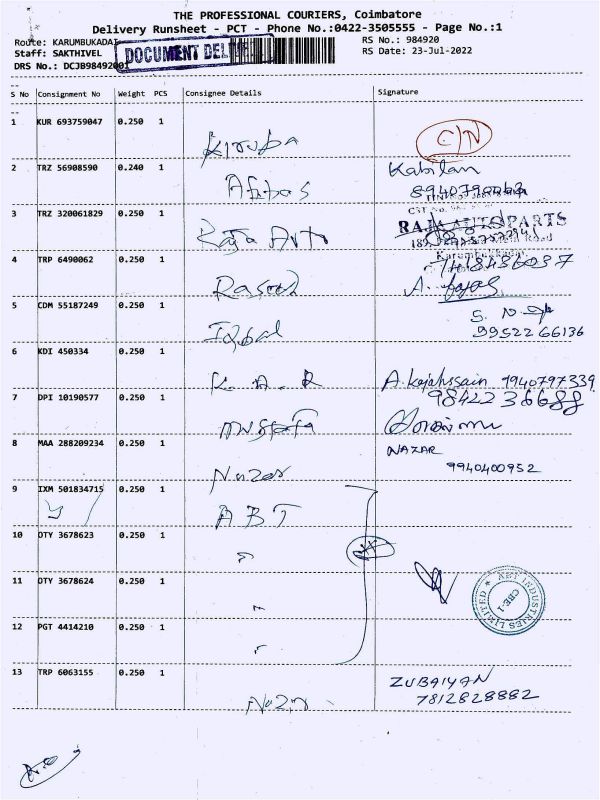 THE PROFESSIONAL COURIERS, Coimbatore
Delivery Runsheet - PCT - Phone No.:0422-3505555 - Page No.:1
Route: KARUMBUKADAI RS No.: 984920
Staff: SAKTHIVEL RS Date: 23-Jul-2022
DOCUMENT DEL
DRS No.: DCJB98492001
S No Consignment No Weight PCS Consignee Details Signature
1 KUR 693759047 0.250 1 Kiruba C/N
2 TRZ 56908590 0.240 1 Abbas Kabilan
3 TRZ 320061829 0.250 1 Raja Auto RAJA AUTO PARTS
4 TRP 6490062 0.250 1 Rasool
5 CDM 55187249 0.250 1 Iqbal 99522 66136
6 KDI 450334 0.250 1 K. A. R A. Kajahssain 7940797339
7 DPI 10190577 0.250 1 Mustafa 98422 36688
8 MAA 288209234 0.250 1 Nazar NAZAR
9940400952
9 IXM 501834715 0.250 1 ABT
10 OTY 3678623 0.250 1 "
11 OTY 3678624 0.250 1 " ABT INDUSTRIES LIMITED CBE-1
12 PGT 4414210 0.250 1 "
13 TRP 6063155 0.250 1 Nazr ZUBAIYAN
7812828882